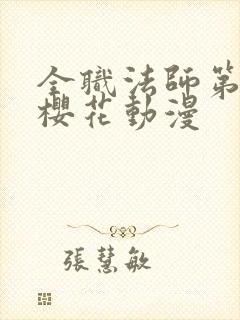 全職法師第
櫻花動漫
張慧敏